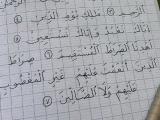 الرَّحِيمِ ۝ مَالِكِ يَوْمِ الدِّينِ ۝
إِيَّاكَ نَعْبُدُ وَإِيَّاكَ نَسْتَعِينُ ۝
اهْدِنَا الصِّرَاطَ الْمُسْتَقِيمَ ۝ صِرَاطَ
الَّذِينَ أَنْعَمْتَ عَلَيْهِمْ غَيْرِ الْمَغْضُوبِ
عَلَيْهِمْ وَلَا الضَّالِّينَ ۝